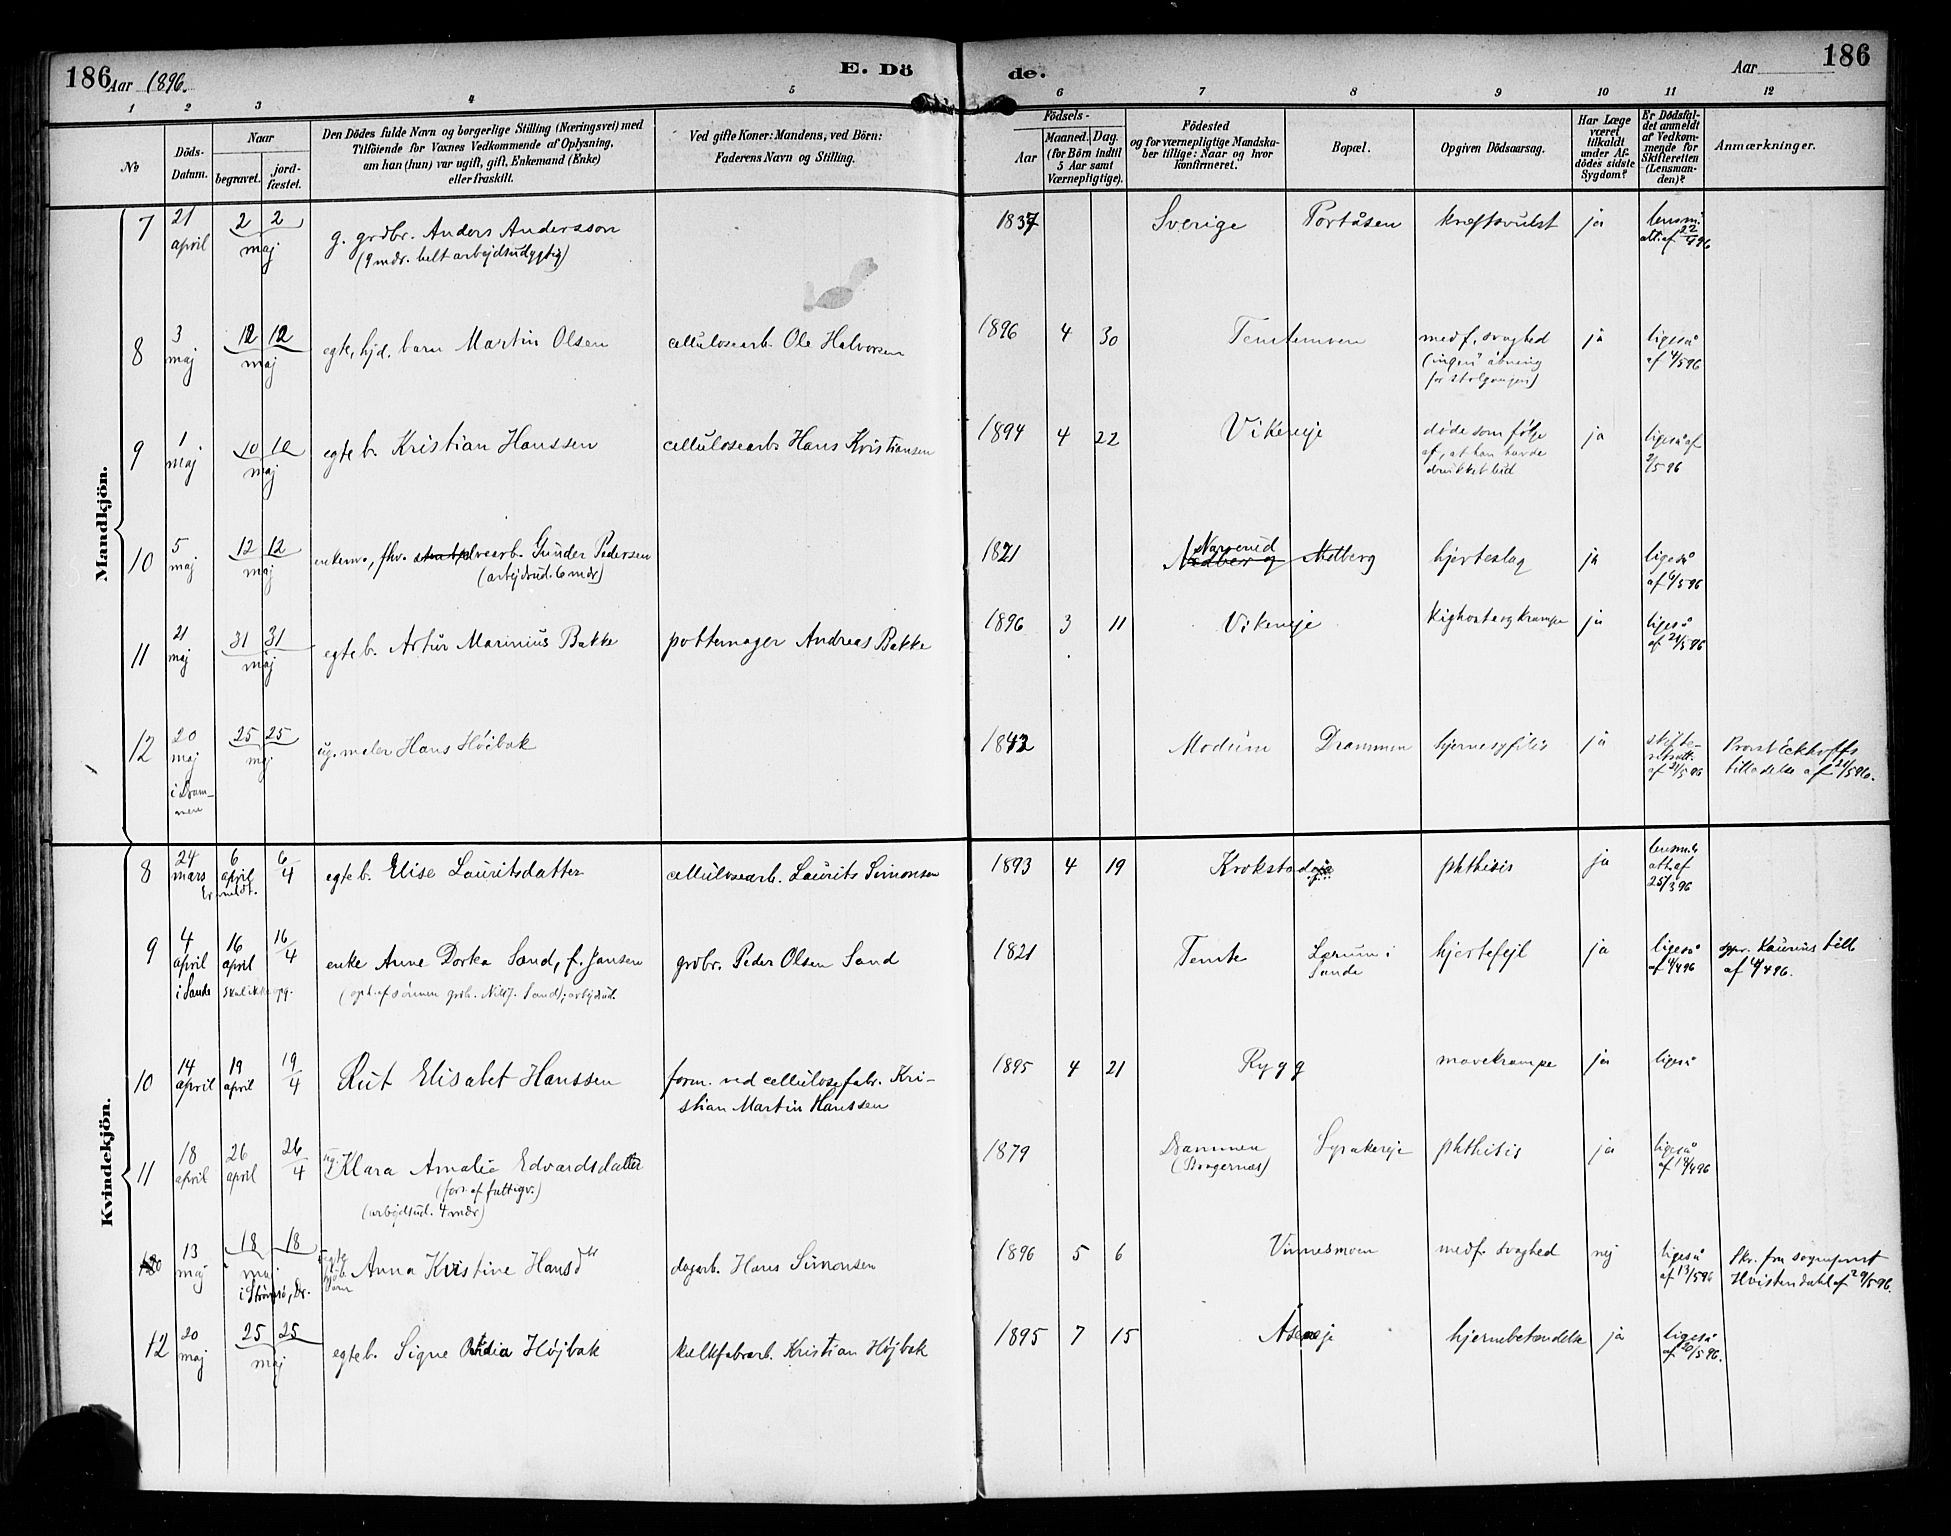 186
Aar 1896.
E. Dö
de.
Aar
186
1 2 3 4 5 6 7 8 9 10 11 12
No
Döds-
Datum.
Naar
begravet.
jord-
fæstet.
Den Dödes fulde Navn og borgerlige Stilling (Næringsvei) med
Tilföiende for Voxnes Vedkommende af Oplysning,
om han (hun) var ugift, gift, Enkemand (Enke)
eller fraskilt.
Ved gifte Koner: Mandens, ved Börn:
Faderens Navn og Stilling.
Födsels-
Aar
Maaned. Dag.
(for Börn indtil
5 Aar samt
Værnepligtige).
Födested
og for værnepligtige Mandska-
ber tillige: Naar og hvor
konfirmeret.
Bopæl.
Opgiven Dödsaarsag.
Har Læge
været
tilkaldt
under Af-
dödes sidste
Sygdom?
Er Dödsfal-
det anmeldt
af Vedkom-
mende for
Skifteretten
(Lensman-
den)?
Anmærkninger.
Mandkjön.
7 21 april 2 2 maj g. grdbr. Anders Andersson
(9 mdr. helt arbejdsudygtig)
1837 Sverige Portåsen kræftsvulst ja lensm.
att. af 22/4 96
8 3 maj 12 12 maj egte, hjd. barn Martin Olsen cellulosearb. Ole Halvorsen
1896 4 30 Temtemoen medf. svaghed ja ligeså
(ingen åbning af 4/5 96
for stolgangen)
9 1 maj 10 10 maj egte b. Kristian Hanssen cellulosearb. Hans Kristiansen
1894 4 22 Vikereje døde som følge ja ligeså af
af, at han havde 2/5 96
drukket lud
10 5 maj 12 12 maj enkem., fhv. arb. Gunder Pedersen
(arbejdsud. 6 mdr)
1821 Narverud Melberg hjerteslag ja ligeså
af 6/5 96
11 21 maj 31 31 maj egte b. Artur Marinius Bakke pottemager Andreas Bakke
1896 3 11 Vikereje kighoste og krampe ja ligeså
af 21/5 96
12 20 maj 25 25 maj ug. maler Hans Højbak
i Dram-
men
1842 Modum Drammen hjernesyfilis ja skifte-
af 21/5 96
Provst Eckhoffs
tilladelse af 21/5 96.
Kvindekjön.
8 24 mars 6 april 6/4 egte b. Elise Lauritsdatter cellulosearb. Laurits Simonsen
Er meldt.
1893 4 19 Krokstad phthisis ja lensm.
att. af
25/3 96
9 4 april 16 april 16/4 enke Anne Dorka Sand, f. Jansen grdbr. Peder Olsen Sand
i Sande skal ikke opg.
1821 Temte Lerum i hjertefejl ja ligeså
Sande af 4/4 96
spr. Kaurins till
af 4/4 96.
10 14 april 19 april 19/4 Rut Elisabet Hanssen form. ved cellulosefabr. Kri-
stian Martin Hanssen
1895 4 21 Rygg mavekrampe ja ligeså
11 18 april 26 april 26/4 ug. Klara Amalie Edvardsdatter
(fors. af fattigv.)
(arbejdsud. 4 mdr)
1879 Drammen phthisis ja ligeså
(Bragernes) af 18/4 96
13 maj 18 18 maj egte hjd. barn Anna Kristine Hansdtr dagarb. Hans Simonsen
i Strømsø, Dr.
1896 5 6 Vinnesmoen medf. svaghed nej ligeså
af 13/5 96
Skr. fra sogneprest
Hvistendahl af 29/5 96.
12 20 maj 25 25 maj egte b. Signe Højbak kalkfabrarb. Kristian Højbak
1895 7 15 Åseneje hjernebetændelse ja ligeså
af 20/5 96.